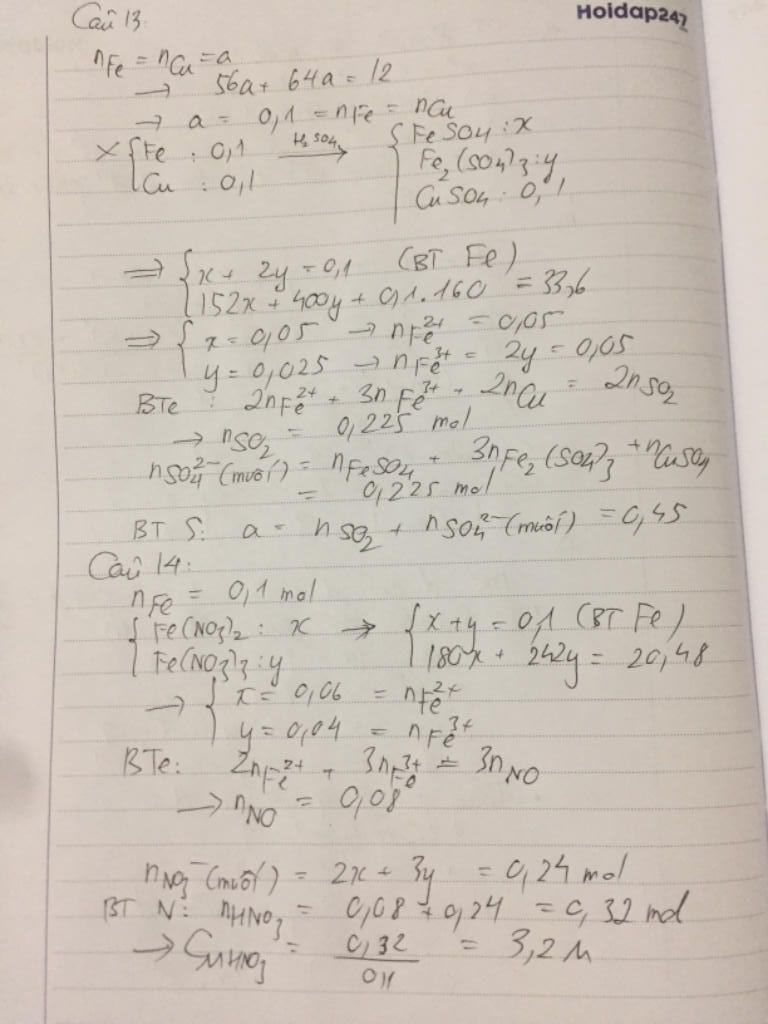 Câu 13
Hoidap247
nFe = nCu = a
→ 56a + 64a = 12
→ a = 0,1 = nFe = nCu
X { Fe : 0,1 H2SO4 → { FeSO4 : x
Cu : 0,1 Fe2(SO4)3 : y
CuSO4 : 0,1
⇒ { x + 2y = 0,1 (BT Fe)
152x + 400y + 0,1.160 = 33,6
⇒ { x = 0,05 → nFe2+ = 0,05
y = 0,025 → nFe3+ = 2y = 0,05
BTe : 2nFe2+ + 3nFe3+ + 2nCu = 2nSO2
→ nSO2 = 0,225 mol
nSO4 2- (muối) = nFeSO4 + 3nFe2(SO4)3 + nCuSO4
= 0,225 mol
BT S: a = nSO2 + nSO4 2- (muối) = 0,45
Câu 14:
nFe = 0,1 mol
{ Fe(NO3)2 : x → { x + y = 0,1 (BT Fe)
Fe(NO3)3 : y 180x + 242y = 20,48
→ { x = 0,06 = nFe2+
y = 0,04 = nFe3+
BTe: 2nFe2+ + 3nFe3+ = 3nNO
→ nNO = 0,08
nNO3- (muối) = 2x + 3y = 0,24 mol
BT N: nHNO3 = 0,08 + 0,24 = 0,32 mol
→ CMHNO3 = 0,32 / 0,1 = 3,2M